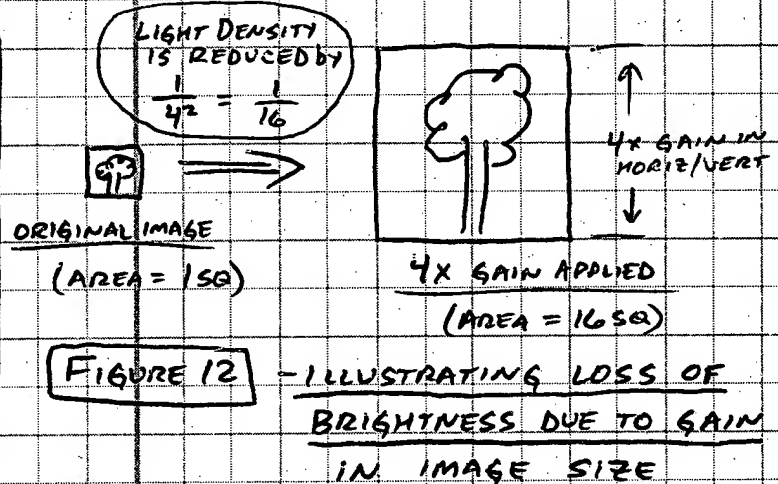 LIGHT DENSITY
IS REDUCED by
1/4² = 1/16
4x GAIN IN
HORIZ/VERT
ORIGINAL IMAGE
(AREA = 1SQ)
4X GAIN APPLIED
(AREA = 16SQ)
FIGURE 12 - ILLUSTRATING LOSS OF
BRIGHTNESS DUE TO GAIN
IN IMAGE SIZE